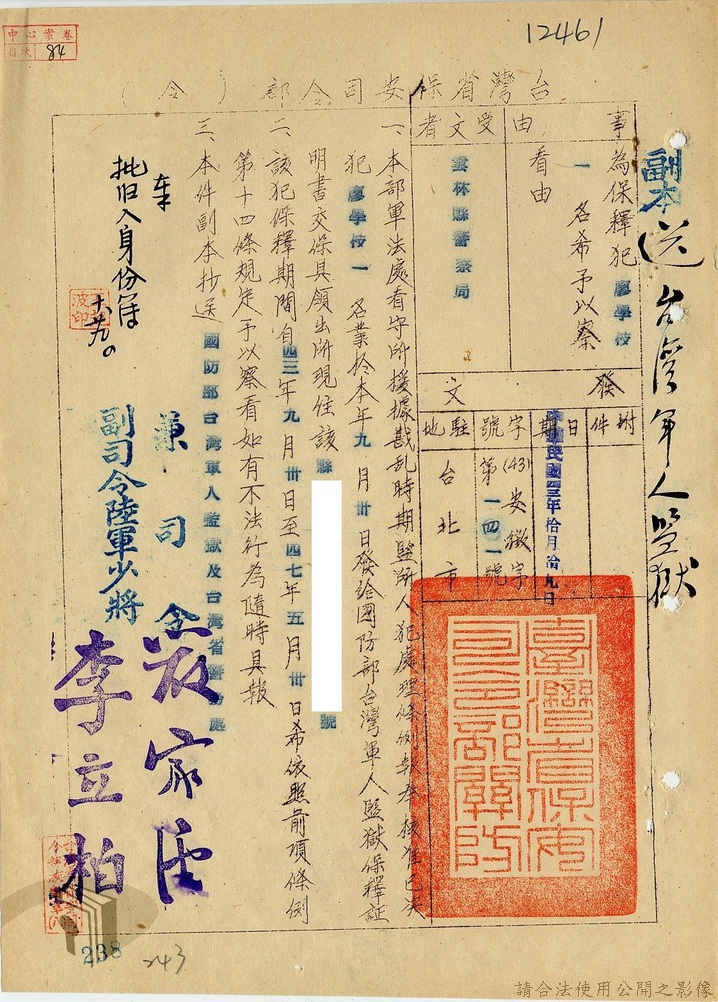 12461
中心案卷
目次 84
台灣省保安司令部（令）
副本
送台灣軍人監獄
事由
為保釋犯廖學枝一名希予以察看由
受文者
雲林縣警察局
發文
附件
日期
中華民國四三年拾月拾九日
字號
(43)安徵字第一四一號
駐地
台北市
臺灣省保安司令部關防
一、本部軍法處看守所援據戡乱時期監所人犯處理條例報奉核准已决
犯廖學枝一名業於本年九月卅日發給國防部台灣軍人監獄保釋証
明書交保具領出所現住該縣
號
二、該犯保釋期間自四三年九月卅日至四七年五月卅日希依照前項條例
第十四條規定予以察看如有不法行為隨時具報
三、本件副本抄送國防部台灣軍人監獄及台灣省警務處
兼司令嚴家淦
副司令陸軍少將李立柏
批旧入身份簿
238
243
請合法使用公開之影像